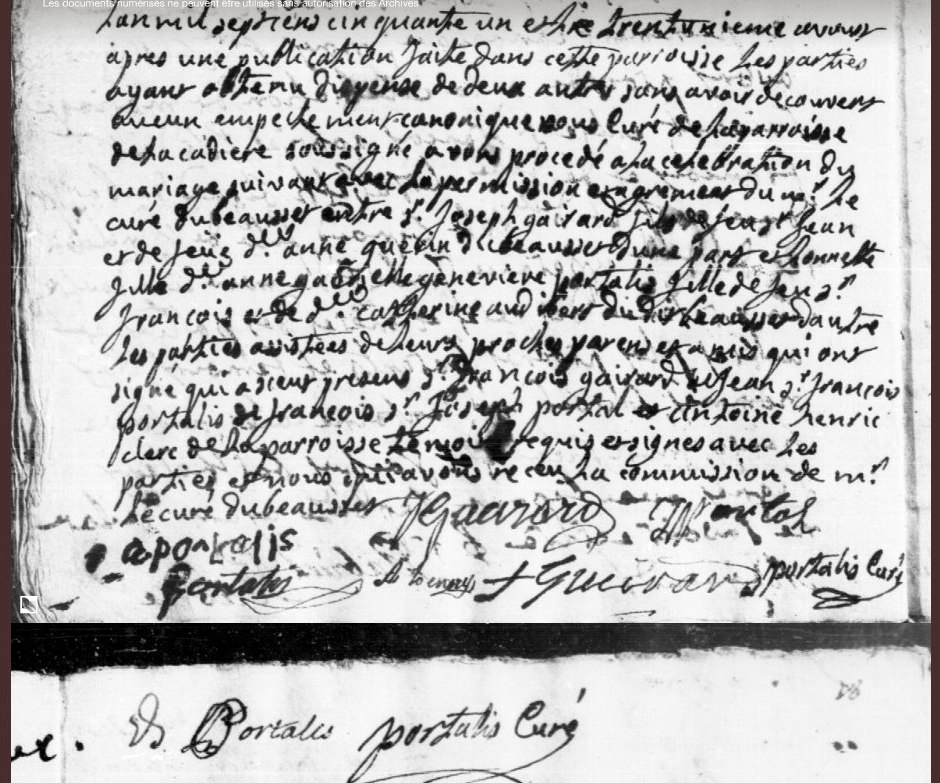 Les documents numérisés ne peuvent être utilisés sans autorisation des Archives.
Lan mil septcens cinquante un et le trentunieme aoust
apres une publication faite dans cette parroisse Les parties
ayant obtenu dispense de deux autres sans avoir decouvert
aucun empechement canonique nous Curé de Laparroisse
de La cadiere soussigné avons procedé a La celebration du
mariage suivant avec La permission et agrement du mr. Le
curé dubeausset entre sr. Joseph gairard fils de feu sr Jean
et de feue dlle anne guerin dubeausset dune part et honnette
fille dlle anne gabrielle genevieve portalis fille de feu sr.
françois et de dlle catherine audibert dudit beausset dautre
Les parties assistées de Leurs proches parens et amis qui ont
signé qui a sceu presens sr. françois gairard de Jean sr. françois
portalis de françois sr. Joseph portal et antoine henric
clerc de La parroisse temoins requis et signes avec Les
parties et nous qui avons receu La commission de mr
Le curé dubeausset JGairard Portal
aportalis
Portalis Gueirard portalis Curé
Portalis portalis Curé